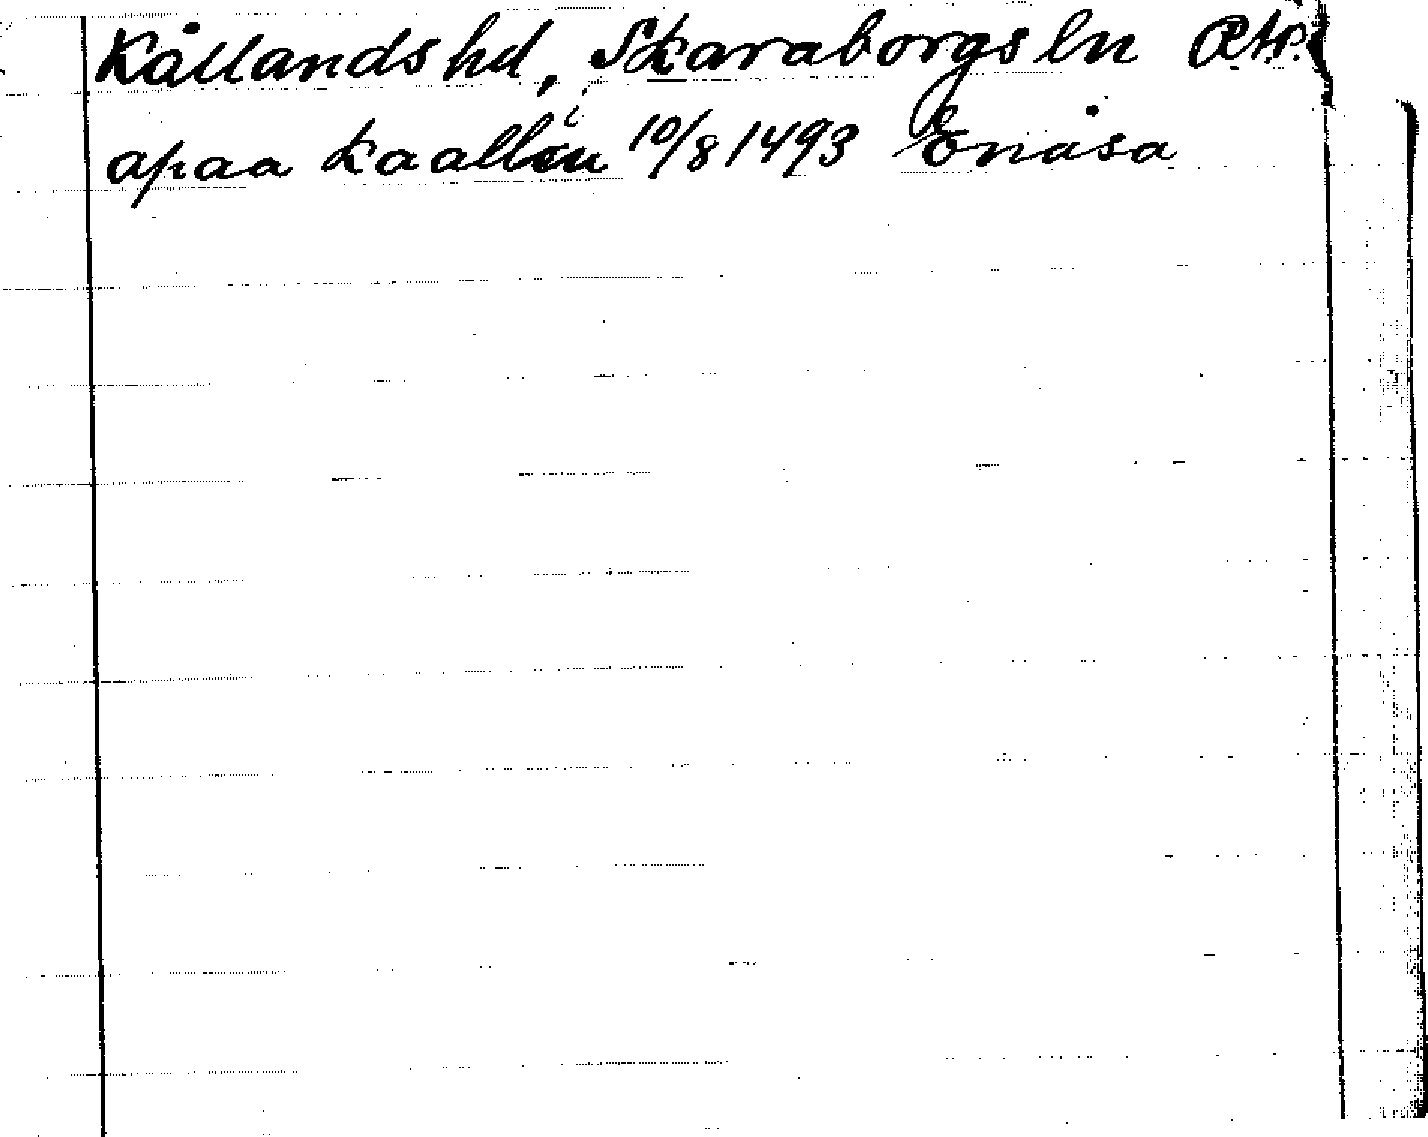 Kållands hd, Skaraborgs ln Rtp.
apaa Kaallen 10/8 1493 Enåsa